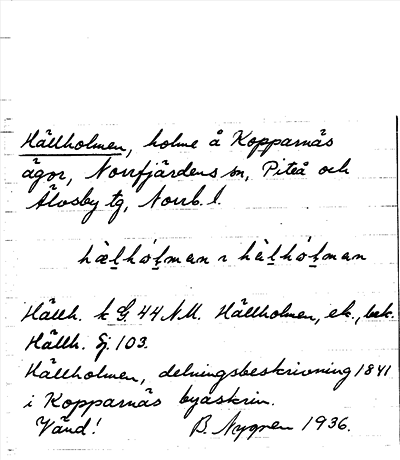 Hällholmen, holme å Kopparnäs
ägor, Norrfjärdens sn, Piteå och
Älvsby tg, Norrb. l.
hälhólman ꝛ hä̀lhólman
Hällh. k G. 44 N.U. Hällholmen, ek., bek.
Hällh. Gj 103.
Hällholmen, delningsbeskrivning 1841
i Kopparnäs byaskrin.
Vänd! B. Nygren 1936.